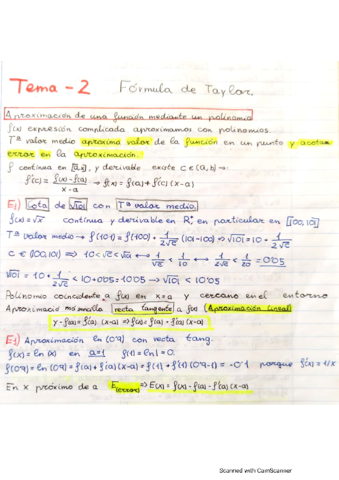 Tema - 2 Fórmula de Taylor.
Aproximación de una función mediante un polinomio
f(x) expresión complicada aproximamos con polinomios.
Tª valor medio aproxima valor de la función en un punto y acotam
error en la aproximación.
f continua en [a,x], y derivable existe c ∈ (a,b) →
f'(c) = f(x) - f(a) / x-a → f(x) = f(a) + f'(c) (x-a)
Ej) Cota de √101 con Tª valor medio.
f(x) = √x continua y derivable en R⁺, en particular en [100,101]
Tª valor medio → f(101) = f(100) + 1/2√c (101-100) ⇒ √101 = 10 + 1/2√c
c ∈ (100,101) ⇒ 10 < √c < √101 ⟷ 1/√c < 1/10 ⟷ 1/2√c < 1/20 = 0'05
√101 = 10 + 1/2√c < 10 + 0'05 = 10'05 → √101 < 10'05
Polinomio coincidente a f(x) en x=a y cercano en el entorno
Aproximació más sencilla recta tangente a f(x) (Aproximación lineal)
y - f(a) = f'(a) (x-a) ⇒ f(x) = f(a) + f'(a) (x-a)
Ej) Aproximación ln (0'9) con recta tang.
f(x) = ln (x) en a=1 f(1) = ln 1 = 0.
f(0'9) = ln (0'9) = f(a) + f'(a) (x-a) = f(1) + f'(1) (0'9-1) = -0'1 porque f'(x) = 1/x
En x próximo de a E(error) ⇒ E(x) = f(x) - f(a) - f'(a) (x-a)
Scanned with CamScanner